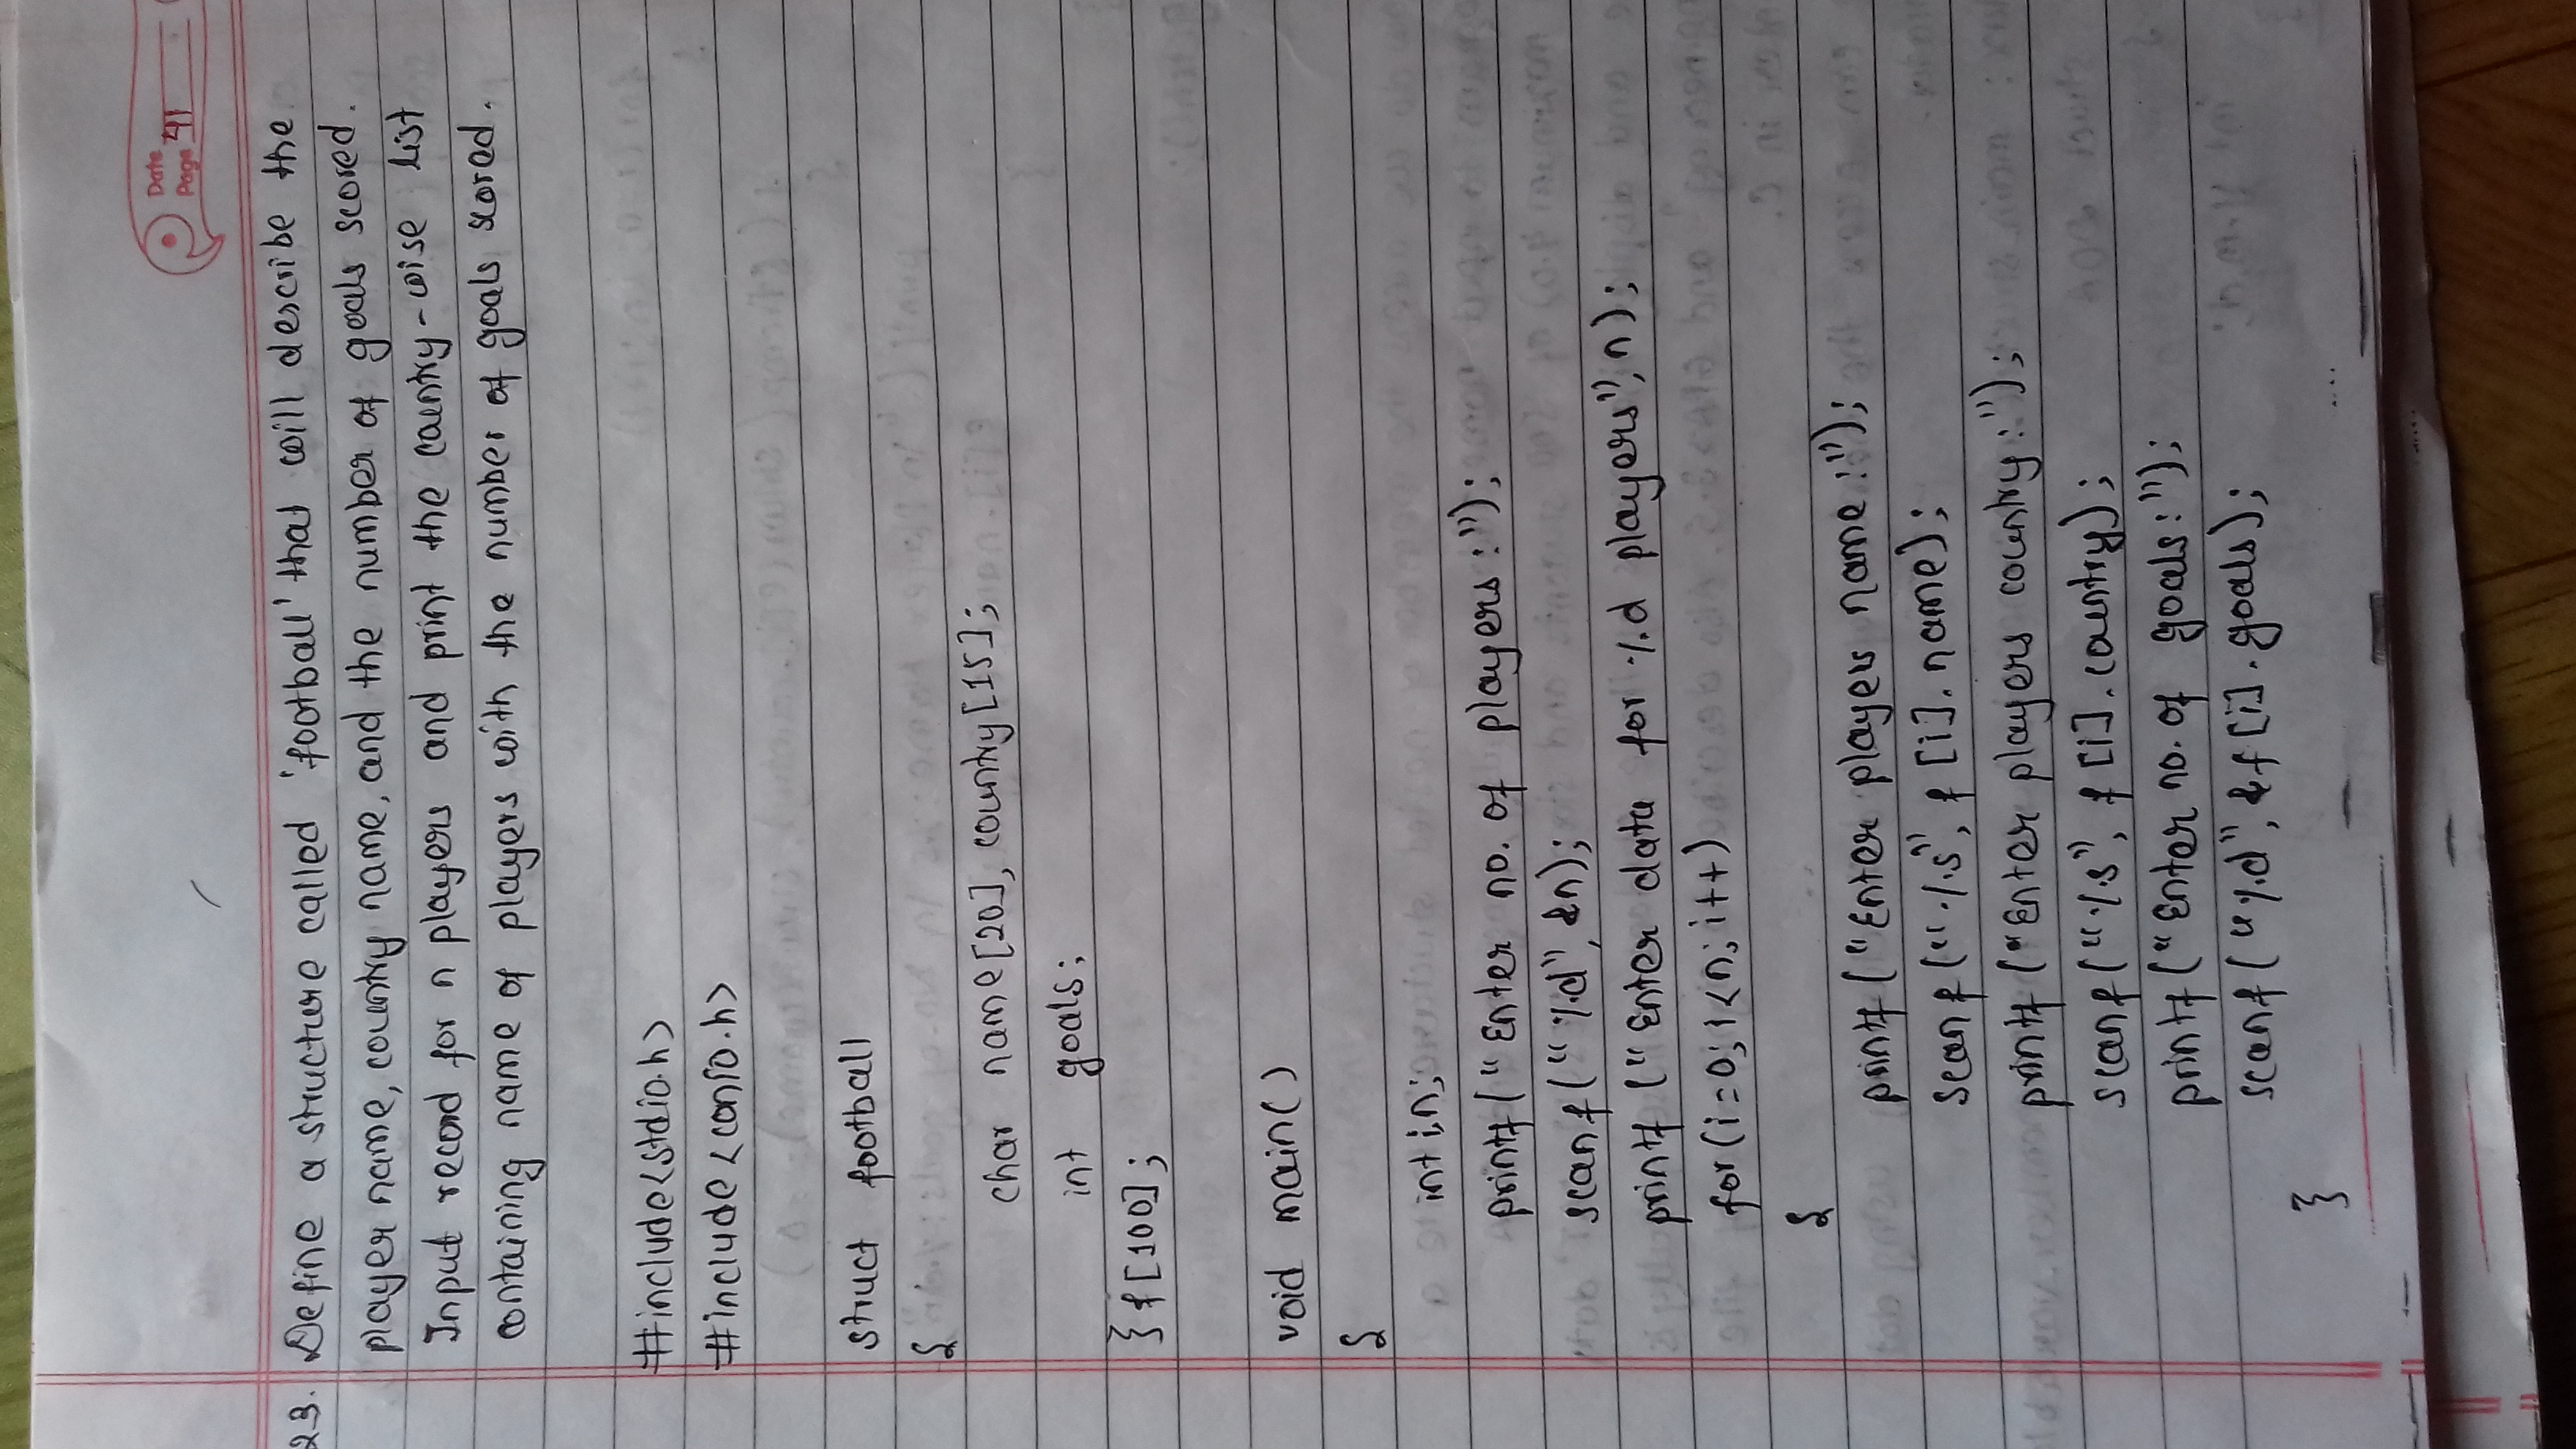 Date
Page 41
23. Define a structure called 'football' that will describe the
player name, country name, and the number of goals scored.
Input record for n players and print the country-wise list
containing name of players with the number of goals scored.
#include<stdio.h>
#include<conio.h>
struct football
{
char name[20], country[15];
int goals;
} f[100];
void main()
{
int i,n;
printf("Enter no. of players:");
scanf("%d", &n);
printf("Enter data for %d players", n);
for(i=0; i<n; i++)
{
printf("Enter players name:");
scanf("%s", f[i].name);
printf("Enter players country:");
scanf("%s", f[i].country);
printf("Enter no. of goals:");
scanf("%d", &f[i].goals);
}